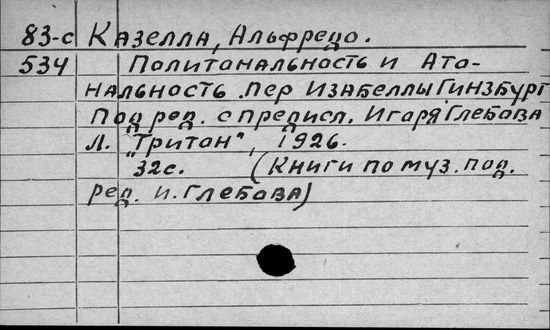 83-с Казелла, Альфредо.
534 Политональность и Ато-
нальность. пер Изабеллы Гинзбург
Под ред. с предисл. Игаря Глебава
Л. "Тритон", 1926.
32с. (Книги по муз. под.
ред. и. Глебава)